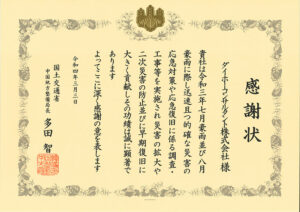 感謝状
ダイホーコンサルタント株式会社 様
貴社は令和三年七月豪雨並び八月
豪雨に際し迅速且つ的確な災害の
応急対策や応急復旧に係る調査・
工事等を実施され災害の拡大や
二次災害の防止並びに早期復旧に
大きく貢献しその功績は誠に顕著で
あります
よってここに深く感謝の意を表します
令和四年三月三日
国土交通省
中国地方整備局長
多田 智